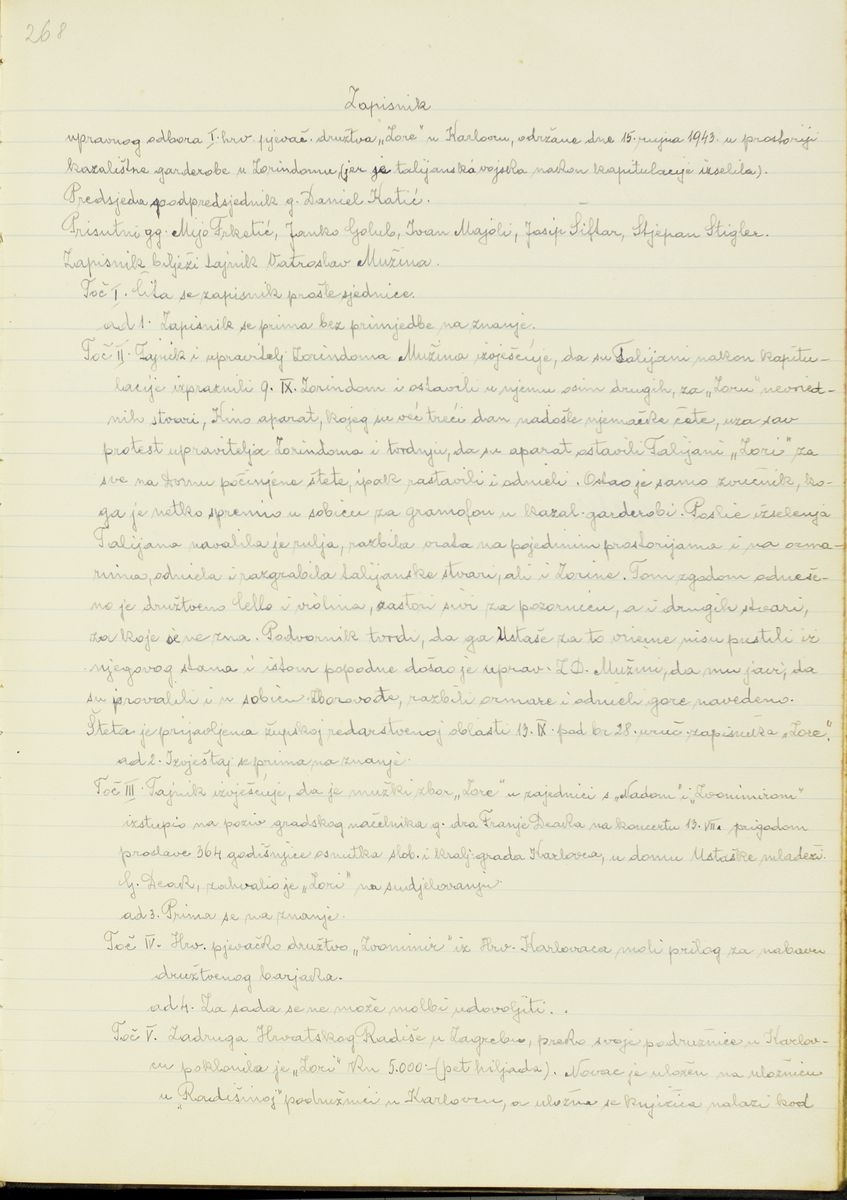 268
Zapisnik
upravnog odbora I. hrv. pjevač. družtva „Zore" u Karlovcu, održane dne 15. rujna 1943. u prostoriji
kazalištne garderobe u Zorindomu (jer je talijanska vojska nakon kapitulacije izselila).
Predsjeda podpredsjednik g. Daniel Katić.
Prisutni gg. Mijo Frketić, Janko Golub, Ivan Majoli, Josip Šiftar, Stjepan Stigler.
Zapisnik bilježi tajnik Vatroslav Mužina.
Toč I. Čita se zapisnik prošle sjednice.
ad 1. Zapisnik se prima bez primjedbe na znanje.
Toč II. Tajnik i upravitelj Zorindoma Mužina izvješćuje, da su Talijani nakon kapitu-
lacije izpraznili 9. IX. Zorindom i ostavili u njemu osim drugih, za „Zoru" nevried-
nih stvari, Kino aparat, kojeg su već treći dan nadošle njemačke čete, uza sav
protest upravitelja Zorindoma i tvrdnju, da su aparat ostavili Talijani „Zori" za
sve na domu počinjene štete, ipak rastavili i odnieli. Ostao je samo zvučnik, ko-
ga je netko spremio u sobicu za gramofon u kazal. garderobi. Poslie izselenja
Talijana navalila je rulja, razbila vrata na pojedinim prostorijama i na orma-
rima, odniela i razgrabila talijanske stvari, ali i Zorine. Tom zgodom odneše-
no je družtveno Cello i violina, zastori sivi za pozornicu, a i drugih stvari,
za koje se ne zna. Podvornik tvrdi, da ga Ustaše za to vrieme nisu pustili iz
njegovog stana i istom popodne došao je uprav. Z.D. Mužini, da mu javi, da
su provalili i u sobicu Zborovođe, razbili ormare i odnieli gore navedeno.
Šteta je prijavljena župskoj redarstvenoj oblasti 13. IX. pod br 28. uruč. zapisnika „Zore".
ad 2. Izvještaj se prima na znanje.
Toč III. Tajnik izvješćuje, da je mužki zbor „Zore" u zajednici s „Nadom" i „Zvonimirom"
iztupio na poziv gradskog načelnika g. dra Franje Deaka na koncertu 13. VII. prigodom
proslave 364 godišnjice osnutka slob. i kralj. grada Karlovca, u domu Ustaške mladeži.
G. Deak, zahvalio je „Zori" na sudjelovanju.
ad 3. Prima se na znanje.
Toč IV. Hrv. pjevačko družtvo „Zvonimir" iz Hrv. Karlovaca moli prilog za nabavu
družtvenog barjaka.
ad 4. Za sada se ne može molbi udovoljiti.
Toč V. Zadruga Hrvatskog Radiše u Zagrebu, preko svoje podružnice u Karlov-
cu poklonila je „Zori" Kn 5.000.- (pet hiljada). Novac je uložen na uložnicu
u „Radišinoj" podružnici u Karlovcu, a uložna se knjižica nalazi kod